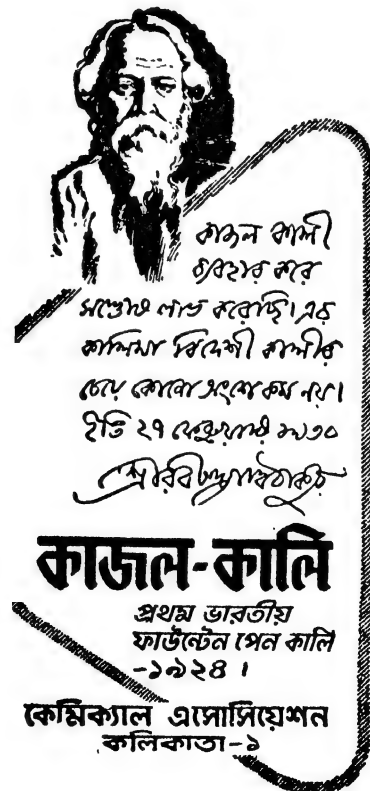 কাজল কালী
ব্যবহার করে
সন্তোষ লাভ করেছি। এর
কালিমা বিদেশী কালীর
চেয়ে কোনো অংশে কম নয়।
ইতি ২৭ ফেব্রুয়ারি ১৯৩০
শ্রীরবীন্দ্রনাথ ঠাকুর
কাজল-কালি
প্রথম ভারতীয়
ফাউন্টেন পেন কালি
-১৯২৪।
কেমিক্যাল এসোসিয়েশন
কলিকাতা-১